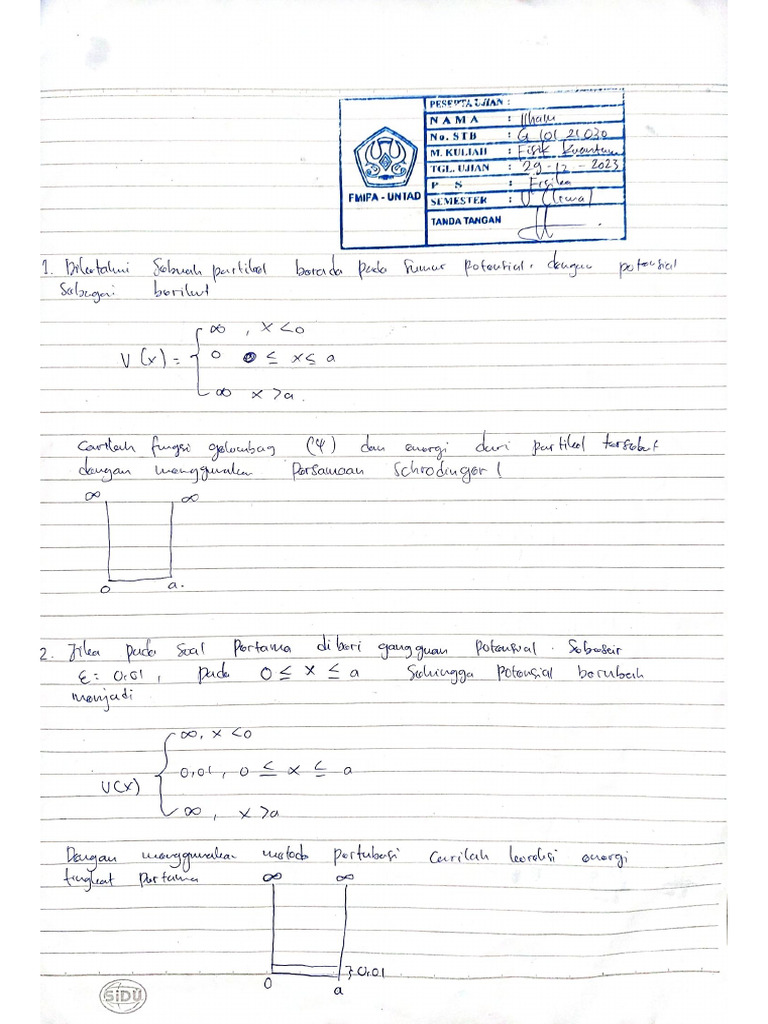 PESERTA UJIAN :
NAMA : Ilham
No. STB : G 101 21 030
M. KULIAH : Fisik Kuantum
TGL. UJIAN : 29-12-2023
P S : Fisika
SEMESTER : V (Lima)
TANDA TANGAN
FMIPA - UNTAD
1. Diketahui Sebuah partikel berada pada Sumur potensial. dengan potensial
Sebagai berikut
V(x) = { ∞ , x < 0
0 0 ≤ x ≤ a
∞ x > a.
Carilah fungsi gelombag (Ψ) dan energi dari partikel tersebut
dengan menggunakan Persamaan Schrodinger !
∞ ∞
0 a.
2. Jika pada Soal Pertama diberi gangguan Potensial. Sebesar
ε = 0,01 , pada 0 ≤ x ≤ a Sehingga Potensial berubah
menjadi
V(x) { ∞, x < 0
0,01 , 0 ≤ x ≤ a
∞ , x > a
Dengan menggunakan metode pertubasi Carilah koreksi energi
tingkat pertama
∞ ∞
} 0.01
0 a
SiDU